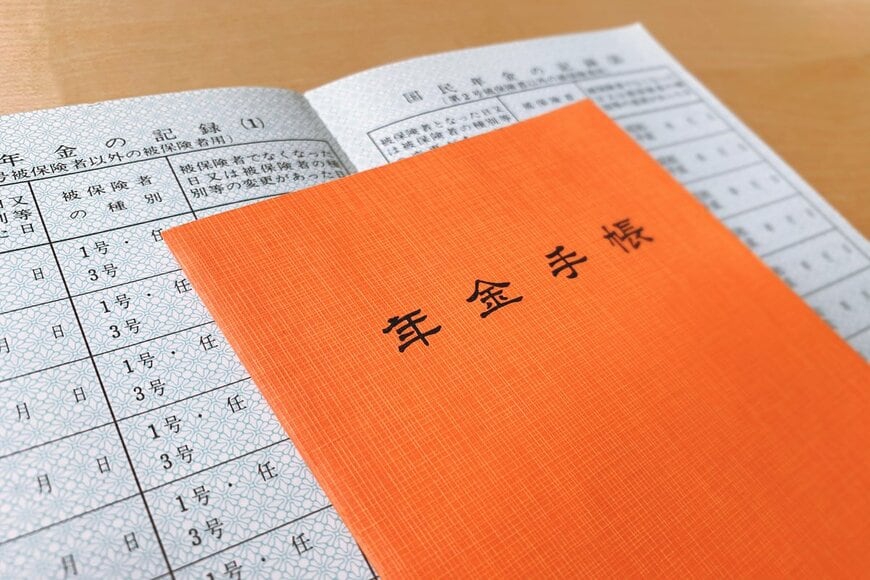 年金手帳
年金の記録(1)
号被保険者以外の被保険者用)
日又
別等
た日
被保険者
の種別
被保険者でなくなっ
日又は被保険者の種
別等の変更があった日
日 1号・任
3号
月 日 1号・任
3号
月 日 1号・任
3号
月 日 1号・任
3号
月 日 1号・任
3号
月 日 1号・任
国民年金の記録
(第2号被保険者以外の被保険者用
被保険者となった日又
は被保険者の種別等
被保険者